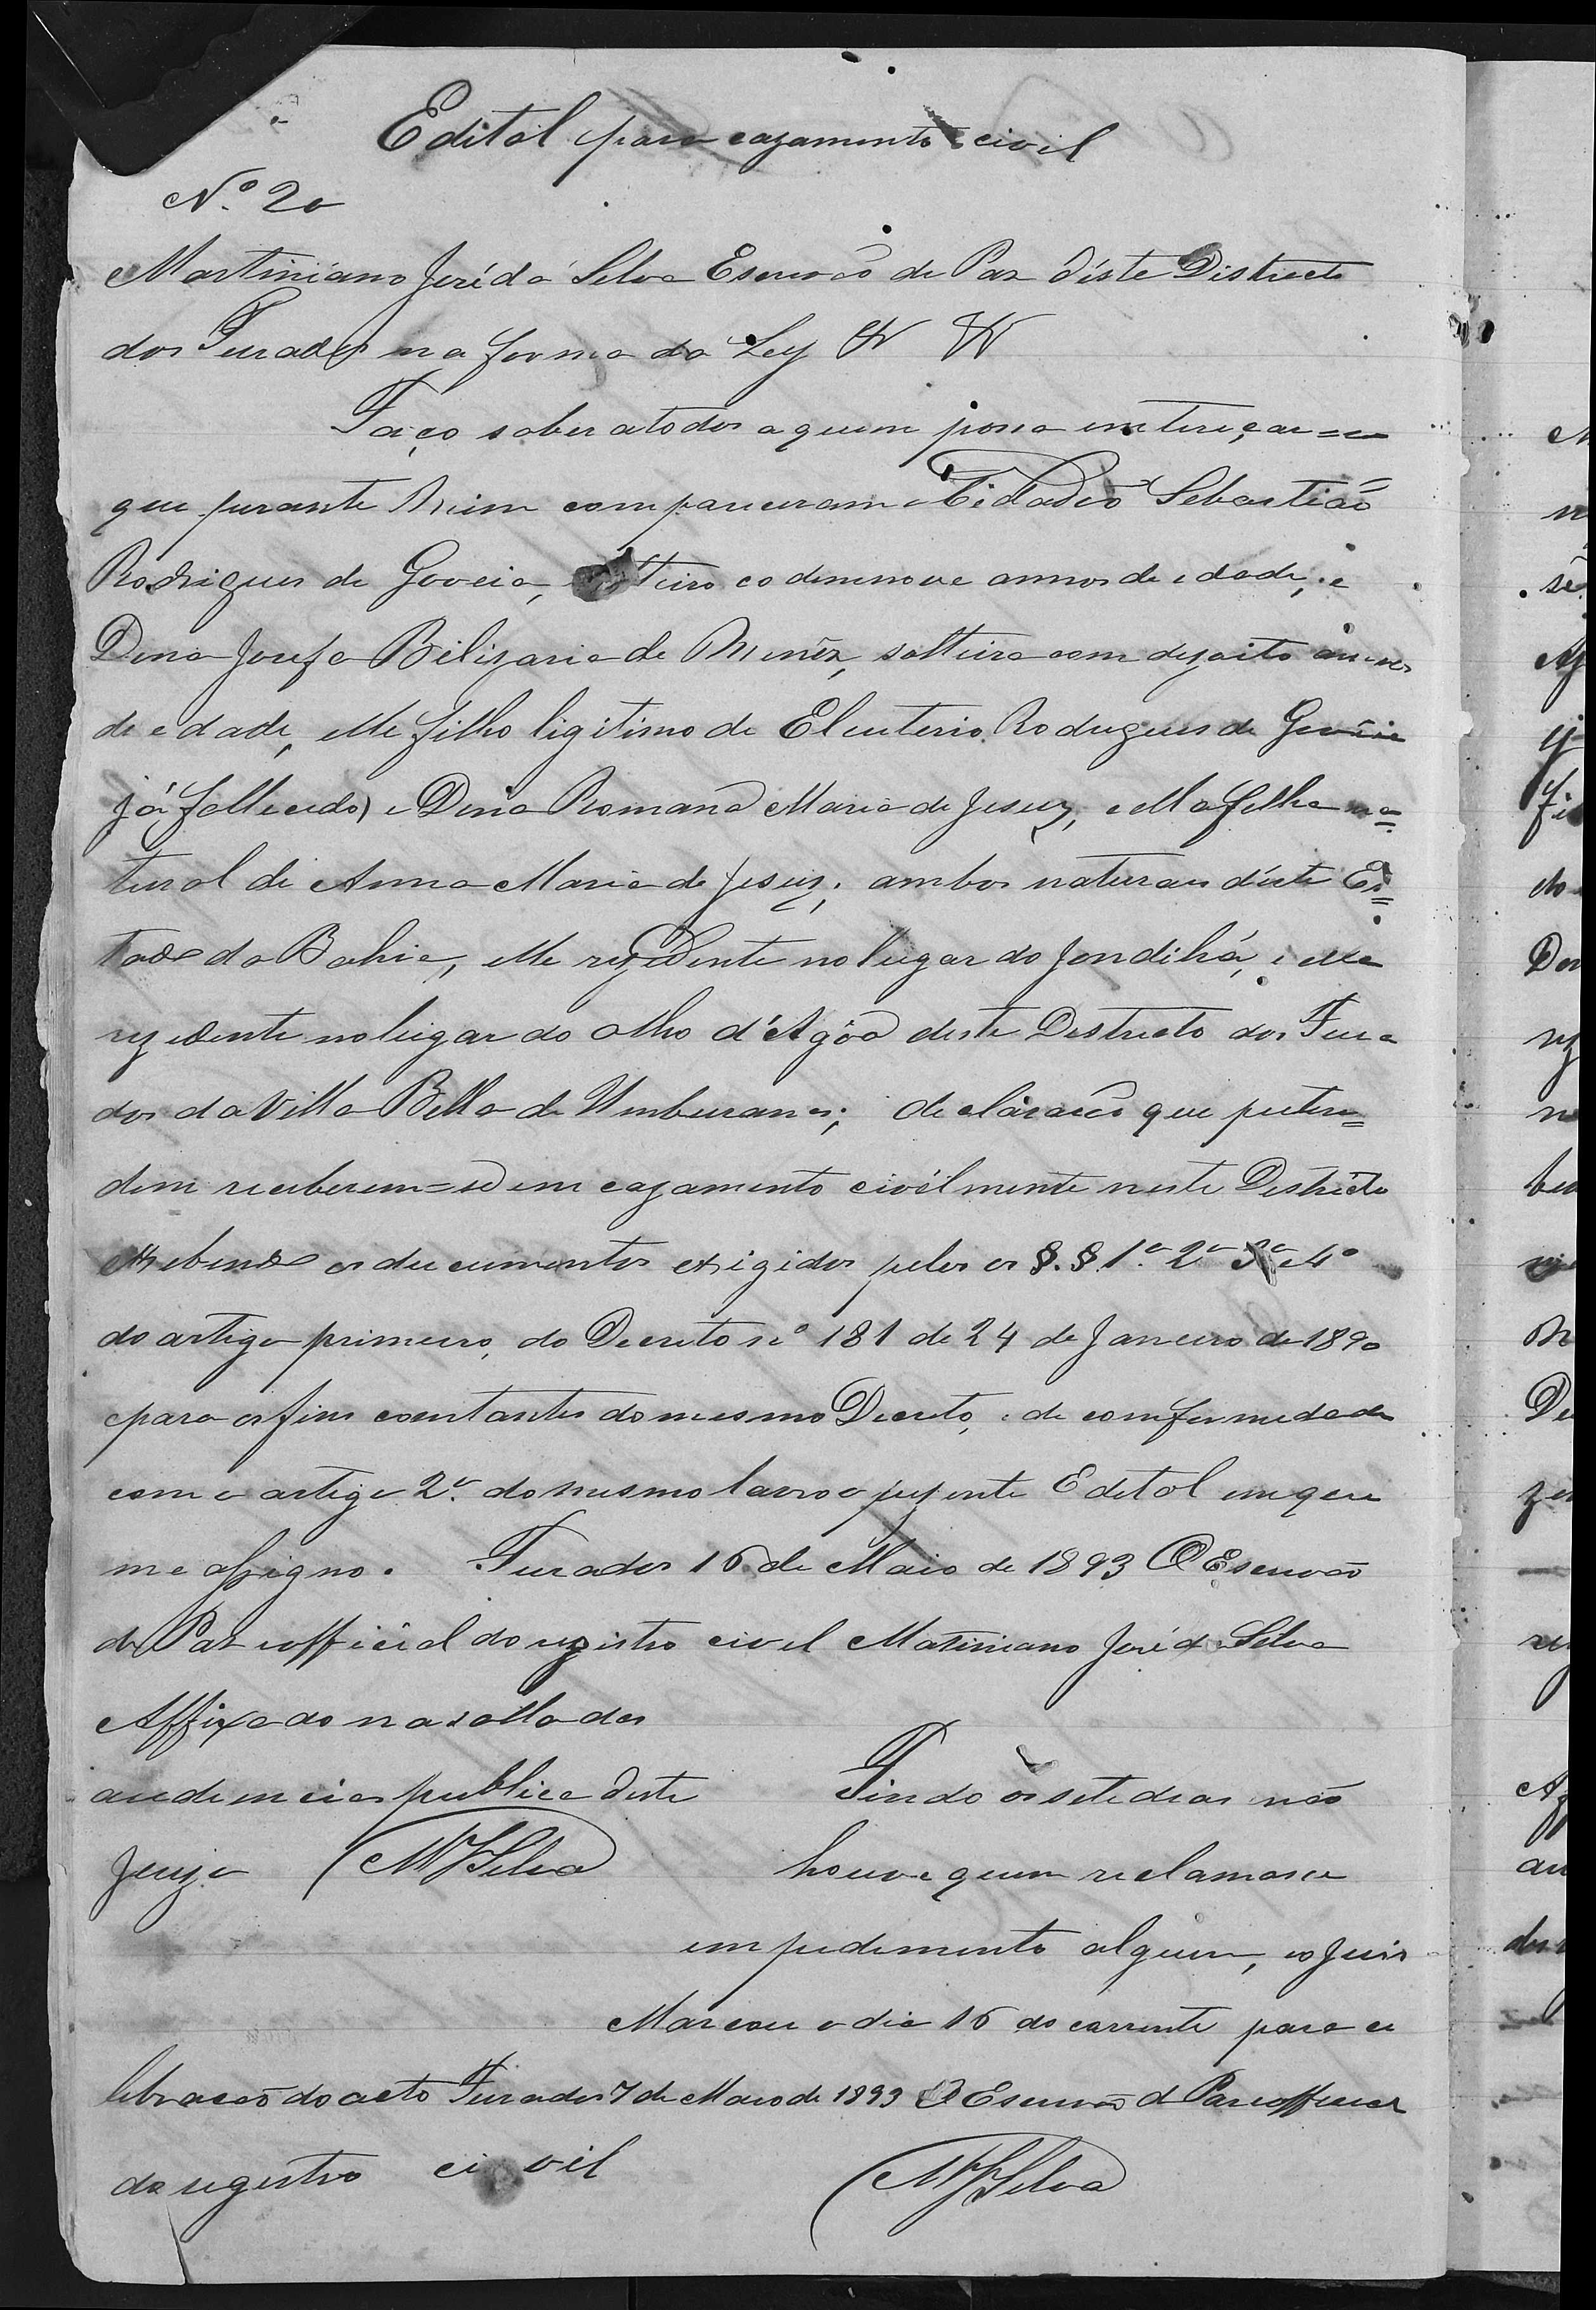 Edital para cazamento civil
Nº 20
Martiniano José da Silva Escrivão de Paz déste Districto
dos Furados na forma da Ley & &
Faço saber a todos a quem possa intereçar=se
que perante mim compareceram o Cidadão Sebastião
Rodrigues de Goveia, solteiro co desenove annos de edade, e
Dona Josefa Bilizaria de Menêz, solteira com dezoito annos
de edade, elle filho ligitimo de Eleuterio Rodrigues de Goveia
já fallecido) e Dona Romana Maria de Jesuz, ella filha na=
tural de Anna Maria de Jesuz; ambos naturaes déste Es=
tado da Bahia, elle rezidente no lugar do Jondihá, e ella
rezidente no lugar do olho d'Agôa deste Destricto dos Fura
dos da Villa Bella de Umburanas; declaração que preten=
dem receberem=se em cazamento civilmente neste Destricto
exhebindo os documentos exigidos pelos os §.§. 1º 2º 3º e 4º
do artigo primeiro, do Decreto nº 181 de 24 de Janeiro de 1890
e para os fins constantes do mesmo Decreto, e de comformedade
com o artigo 2º do mesmo lavro o prezente Edetal em que
me assigno. Furados 16 de Maio de 1893 O Escrivão
de Paz e official do rezistro civel Matiniano José da Silva
Affixado na salla das
audiencias publica deste
Juizo MJSilva
Findo os sete dias não
houve quem reclamasse
impedimento algum, e o Juis
Marcou o dia 16 do corrente para ce
lebração do acto Furados 7 de Maio de 1893 O Escrivão de Paz e official
do registro civil MJSilva